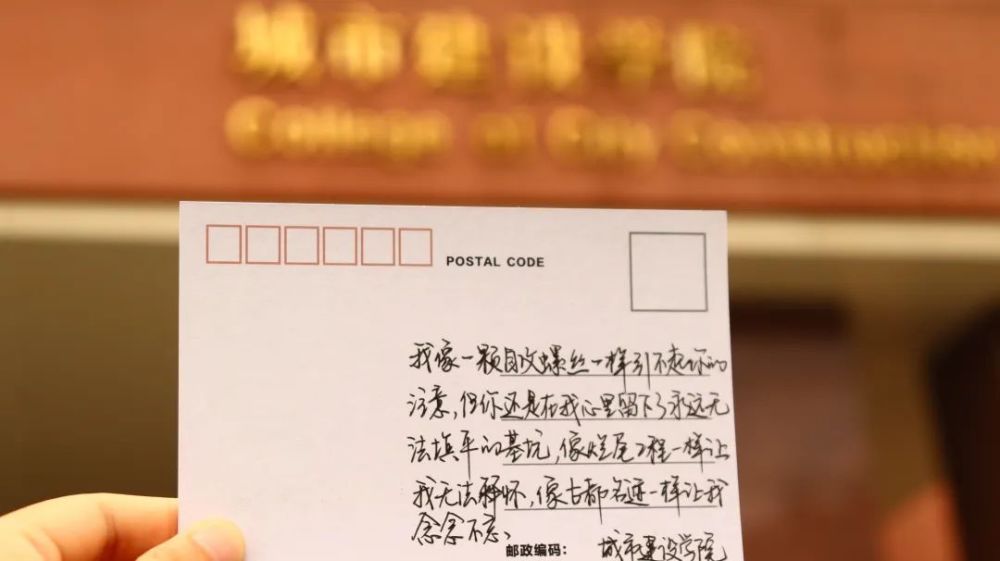 城市建设学院
College of City Construction
POSTAL CODE
我像一颗自攻螺丝一样引不起你的
注意,但你还是在我心里留下了永远无
法填平的基坑,像烂尾工程一样让
我无法释怀,像古都名迹一样让我
念念不忘、
邮政编码: 城市建设学院